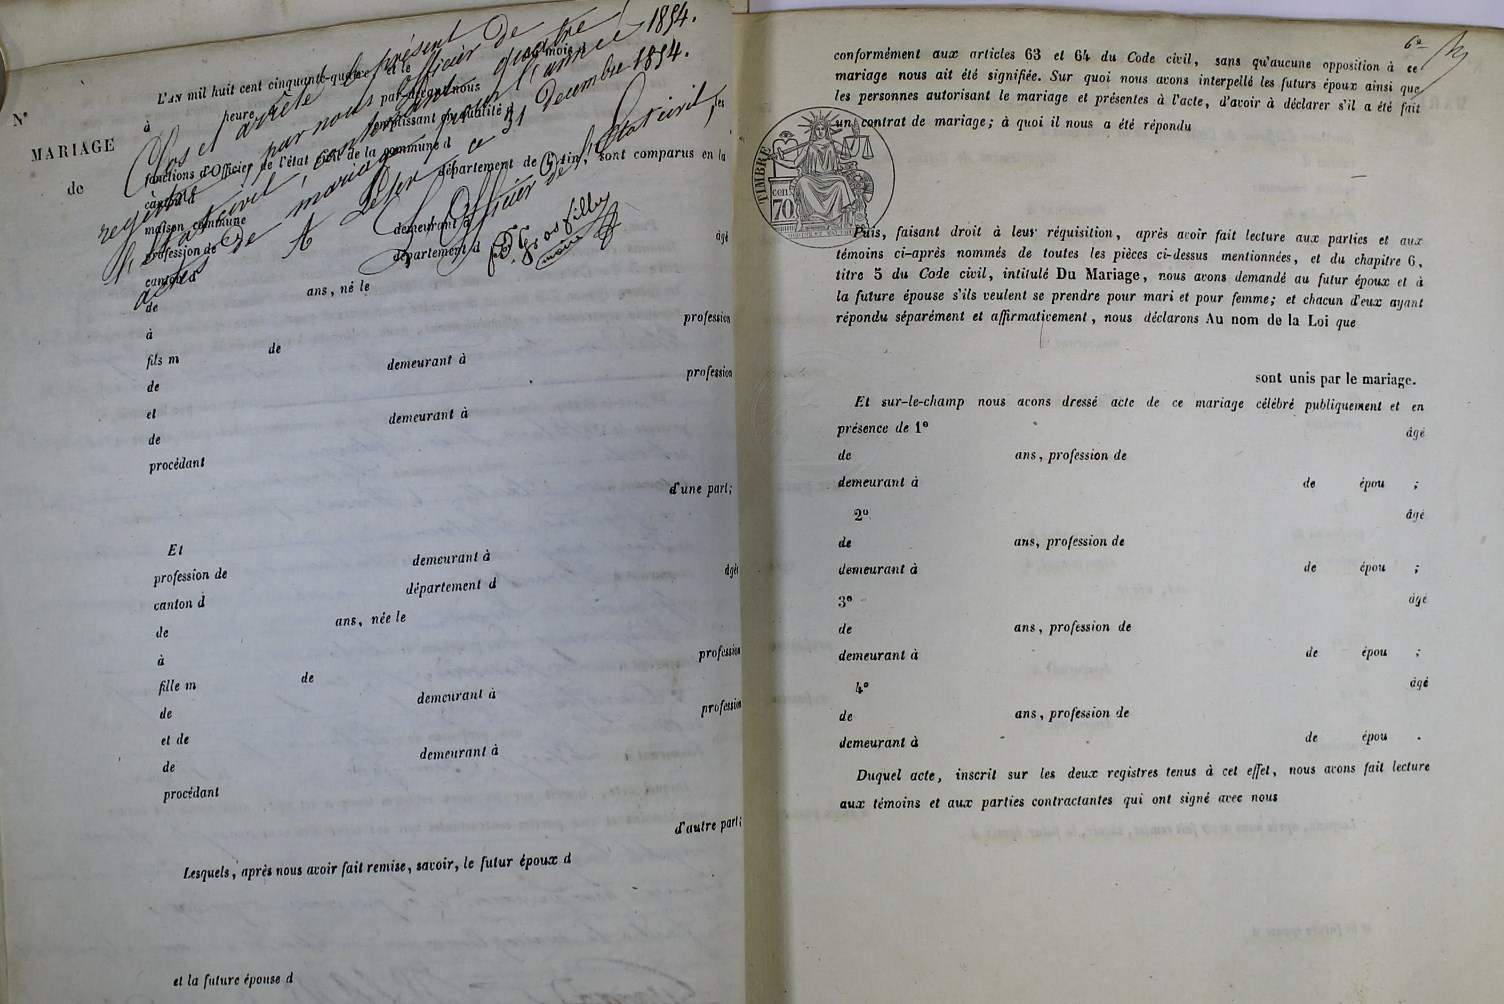 N°
MARIAGE
de
Clos et arrêté le présent
registre par nous officier de
l'état civil, contenant quatre
actes de mariage pour l'année 1854.
A Peter ce 31 Decembre 1854.
L'Officier de l'état civil,
Grosfilley
maire
L'AN mil huit cent cinquante-quatre et le
du mois d
à
heure
par-devant nous
remplissant en qualité d
les
fonctions d'Officier de l'état civil de la commune d
canton d
département de l'Ain, sont comparus en la
maison commune
profession de
demeurant à
canton d
département d
âgé
de
ans, né le
à
fils m
de
profession
de
demeurant à
et
profession
de
demeurant à
procédant
d'une part;
Et
profession de
demeurant à
canton d
département d
âgée
de
ans, née le
à
fille m
de
profession
de
demeurant à
et de
profession
de
demeurant à
procédant
d'autre part;
Lesquels, après nous avoir fait remise, savoir, le futur époux d
et la future épouse d
6e
conformément aux articles 63 et 64 du Code civil, sans qu'aucune opposition à ce
mariage nous ait été signifiée. Sur quoi nous avons interpellé les futurs époux ainsi que
les personnes autorisant le mariage et présentes à l'acte, d'avoir à déclarer s'il a été fait
un contrat de mariage; à quoi il nous a été répondu
TIMBRE
cen
70
Puis, faisant droit à leur réquisition, après avoir fait lecture aux parties et aux
témoins ci-après nommés de toutes les pièces ci-dessus mentionnées, et du chapitre 6,
titre 5 du Code civil, intitulé Du Mariage, nous avons demandé au futur époux et à
la future épouse s'ils veulent se prendre pour mari et pour femme; et chacun d'eux ayant
répondu séparément et affirmativement, nous déclarons Au nom de la Loi que
sont unis par le mariage.
Et sur-le-champ nous avons dressé acte de ce mariage célébré publiquement et en
présence de 1°
âgé
de
ans, profession de
demeurant à
de époux ;
2°
âgé
de
ans, profession de
demeurant à
de épou ;
3°
âgé
de
ans, profession de
demeurant à
de épou ;
4°
âgé
de
ans, profession de
demeurant à
de épou .
Duquel acte, inscrit sur les deux registres tenus à cet effet, nous avons fait lecture
aux témoins et aux parties contractantes qui ont signé avec nous